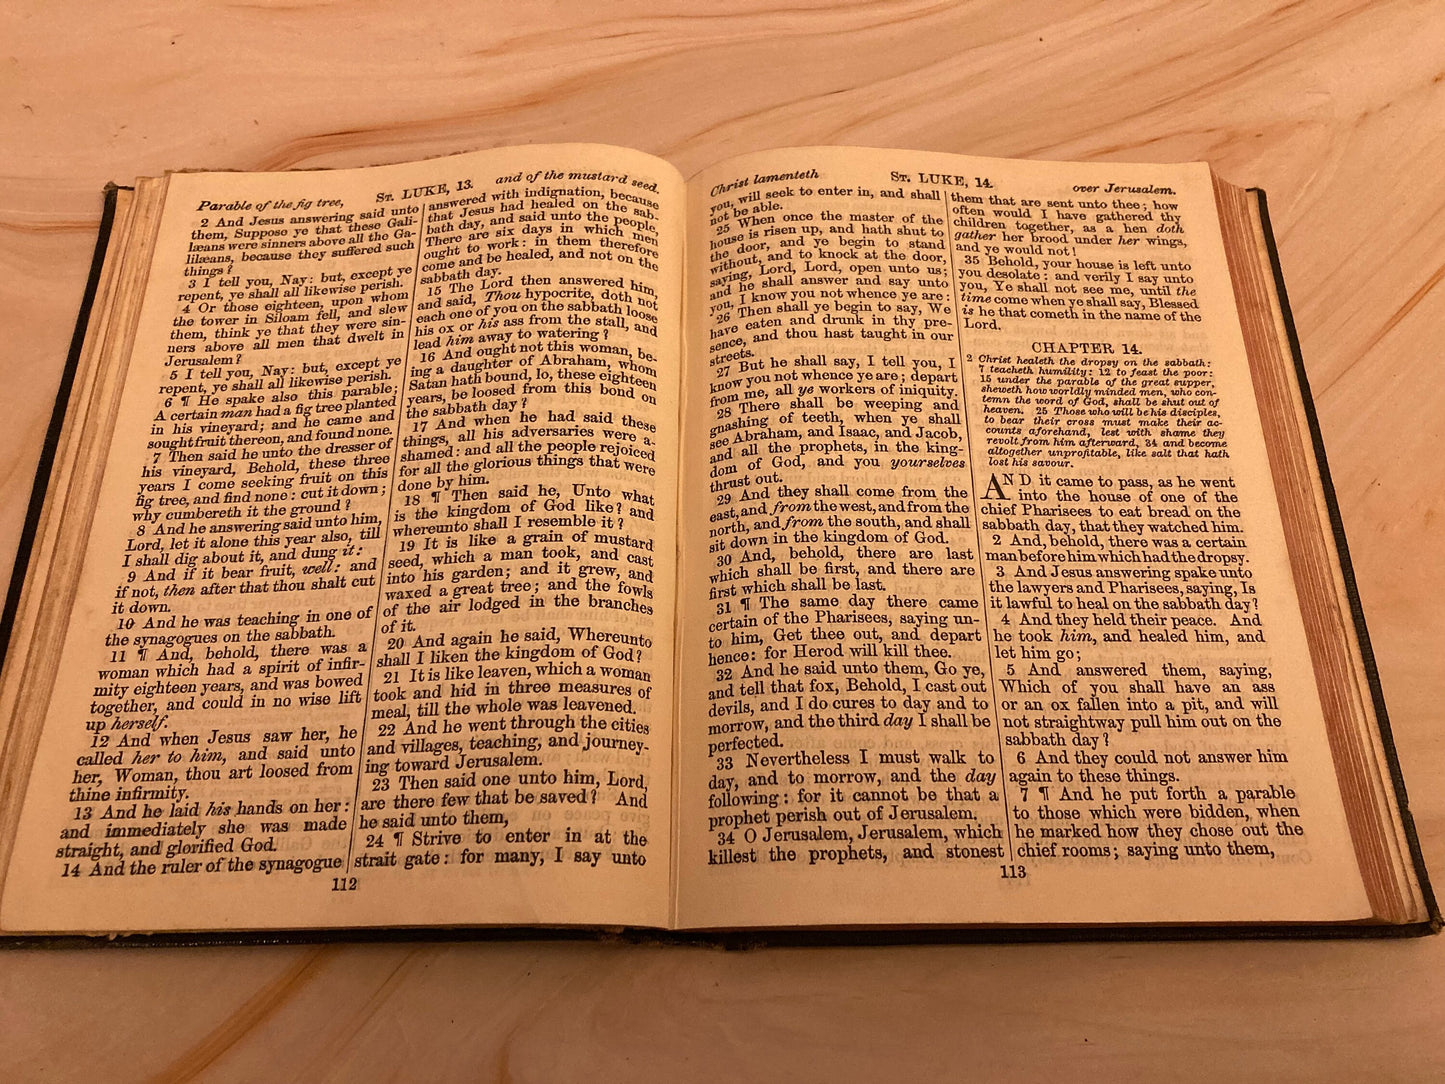 Parable of the fig tree, ST. LUKE, 13. and of the mustard seed.
2 And Jesus answering said unto
them, Suppose ye that these Gali-
læans were sinners above all the Ga-
lilæans, because they suffered such
things?
3 I tell you, Nay: but, except ye
repent, ye shall all likewise perish.
4 Or those eighteen, upon whom
the tower in Siloam fell, and slew
them, think ye that they were sin-
ners above all men that dwelt in
Jerusalem?
5 I tell you, Nay: but, except ye
repent, ye shall all likewise perish.
6 ¶ He spake also this parable;
A certain man had a fig tree planted
in his vineyard; and he came and
sought fruit thereon, and found none.
7 Then said he unto the dresser of
his vineyard, Behold, these three
years I come seeking fruit on this
fig tree, and find none: cut it down;
why cumbereth it the ground?
8 And he answering said unto him,
Lord, let it alone this year also, till
I shall dig about it, and dung it:
9 And if it bear fruit, well: and
if not, then after that thou shalt cut
it down.
10 And he was teaching in one of
the synagogues on the sabbath.
11 ¶ And, behold, there was a
woman which had a spirit of infir-
mity eighteen years, and was bowed
together, and could in no wise lift
up herself.
12 And when Jesus saw her, he
called her to him, and said unto
her, Woman, thou art loosed from
thine infirmity.
13 And he laid his hands on her:
and immediately she was made
straight, and glorified God.
14 And the ruler of the synagogue
answered with indignation, because
that Jesus had healed on the sab-
bath day, and said unto the people,
There are six days in which men
ought to work: in them therefore
come and be healed, and not on the
sabbath day.
15 The Lord then answered him,
and said, Thou hypocrite, doth not
each one of you on the sabbath loose
his ox or his ass from the stall, and
lead him away to watering?
16 And ought not this woman, be-
ing a daughter of Abraham, whom
Satan hath bound, lo, these eighteen
years, be loosed from this bond on
the sabbath day?
17 And when he had said these
things, all his adversaries were a-
shamed: and all the people rejoiced
for all the glorious things that were
done by him.
18 ¶ Then said he, Unto what
is the kingdom of God like? and
whereunto shall I resemble it?
19 It is like a grain of mustard
seed, which a man took, and cast
into his garden; and it grew, and
waxed a great tree; and the fowls
of the air lodged in the branches
of it.
20 And again he said, Whereunto
shall I liken the kingdom of God?
21 It is like leaven, which a woman
took and hid in three measures of
meal, till the whole was leavened.
22 And he went through the cities
and villages, teaching, and journey-
ing toward Jerusalem.
23 Then said one unto him, Lord,
are there few that be saved? And
he said unto them,
24 ¶ Strive to enter in at the
strait gate: for many, I say unto
112
Christ lamenteth ST. LUKE, 14. over Jerusalem.
you, will seek to enter in, and shall
not be able.
25 When once the master of the
house is risen up, and hath shut to
the door, and ye begin to stand
without, and to knock at the door,
saying, Lord, Lord, open unto us;
and he shall answer and say unto
you, I know you not whence ye are:
26 Then shall ye begin to say, We
have eaten and drunk in thy pre-
sence, and thou hast taught in our
streets.
27 But he shall say, I tell you, I
know you not whence ye are; depart
from me, all ye workers of iniquity.
28 There shall be weeping and
gnashing of teeth, when ye shall
see Abraham, and Isaac, and Jacob,
and all the prophets, in the king-
dom of God, and you yourselves
thrust out.
29 And they shall come from the
east, and from the west, and from the
north, and from the south, and shall
sit down in the kingdom of God.
30 And, behold, there are last
which shall be first, and there are
first which shall be last.
31 ¶ The same day there came
certain of the Pharisees, saying un-
to him, Get thee out, and depart
hence: for Herod will kill thee.
32 And he said unto them, Go ye,
and tell that fox, Behold, I cast out
devils, and I do cures to day and to
morrow, and the third day I shall be
perfected.
33 Nevertheless I must walk to
day, and to morrow, and the day
following: for it cannot be that a
prophet perish out of Jerusalem.
34 O Jerusalem, Jerusalem, which
killest the prophets, and stonest
them that are sent unto thee; how
often would I have gathered thy
children together, as a hen doth
gather her brood under her wings,
and ye would not!
35 Behold, your house is left unto
you desolate: and verily I say unto
you, Ye shall not see me, until the
time come when ye shall say, Blessed
is he that cometh in the name of the
Lord.
CHAPTER 14.
2 Christ healeth the dropsy on the sabbath:
7 teacheth humility: 12 to feast the poor:
15 under the parable of the great supper,
sheweth how worldly minded men, who con-
temn the word of God, shall be shut out of
heaven. 25 Those who will be his disciples,
to bear their cross must make their ac-
counts aforehand, lest with shame they
revolt from him afterward, 34 and become
altogether unprofitable, like salt that hath
lost his savour.
AND it came to pass, as he went
into the house of one of the
chief Pharisees to eat bread on the
sabbath day, that they watched him.
2 And, behold, there was a certain
man before him which had the dropsy.
3 And Jesus answering spake unto
the lawyers and Pharisees, saying, Is
it lawful to heal on the sabbath day?
4 And they held their peace. And
he took him, and healed him, and
let him go;
5 And answered them, saying,
Which of you shall have an ass
or an ox fallen into a pit, and will
not straightway pull him out on the
sabbath day?
6 And they could not answer him
again to these things.
7 ¶ And he put forth a parable
to those which were bidden, when
he marked how they chose out the
chief rooms; saying unto them,
113